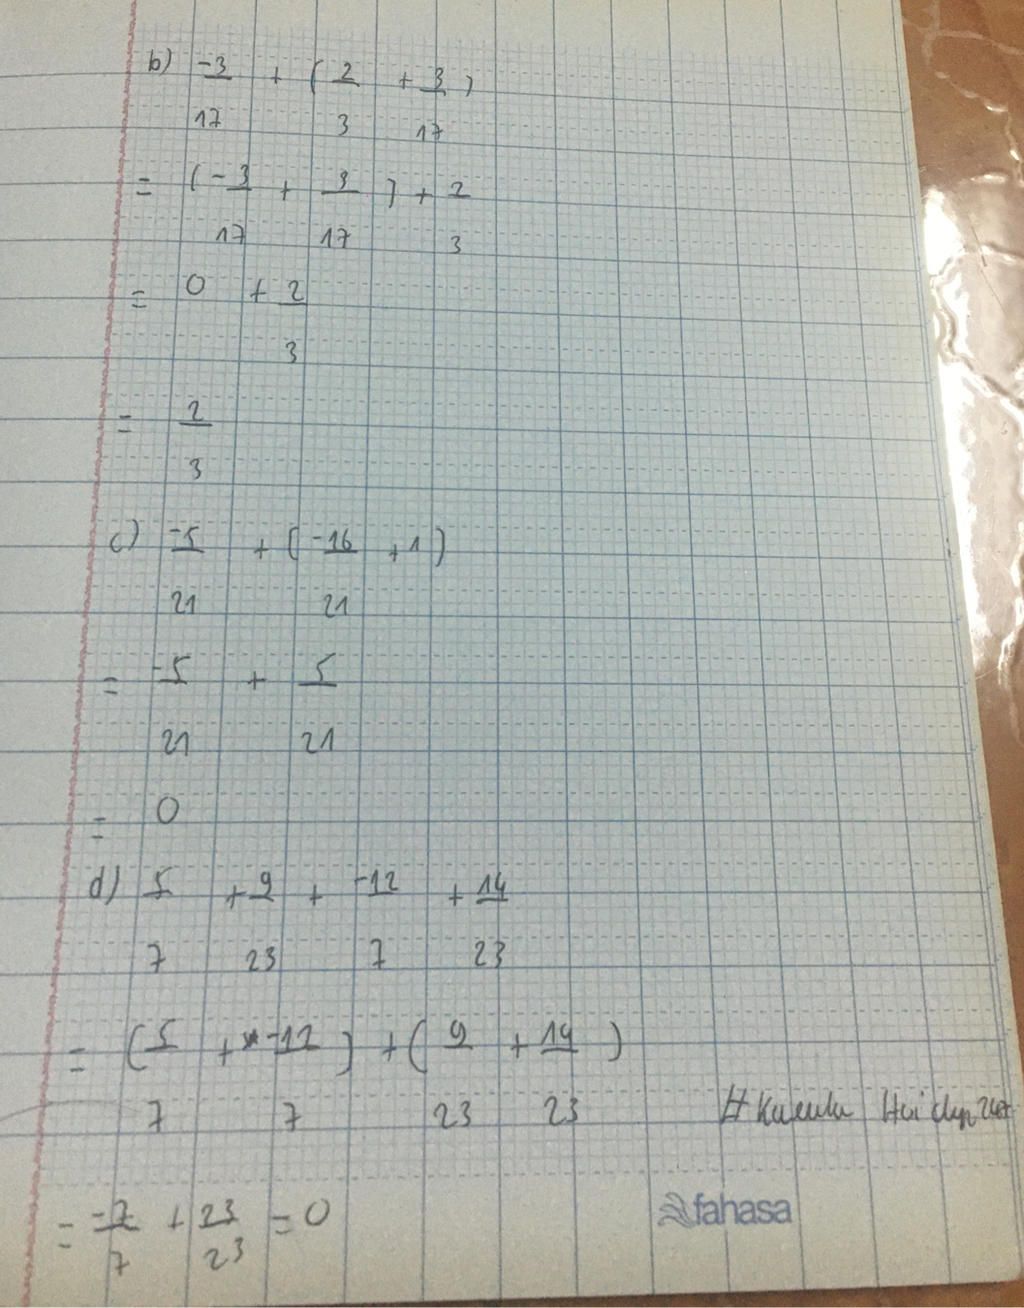 b) -3/17 + (2/3 + 3/17)
= (-3/17 + 3/17) + 2/3
= 0 + 2/3
= 2/3
c) -5/21 + (-16/21 + 1)
= -5/21 + 5/21
= 0
d) 5/7 + 9/23 + -12/7 + 14/23
= (5/7 + -12/7) + (9/23 + 14/23)
= -7/7 + 23/23 = 0
fahasa